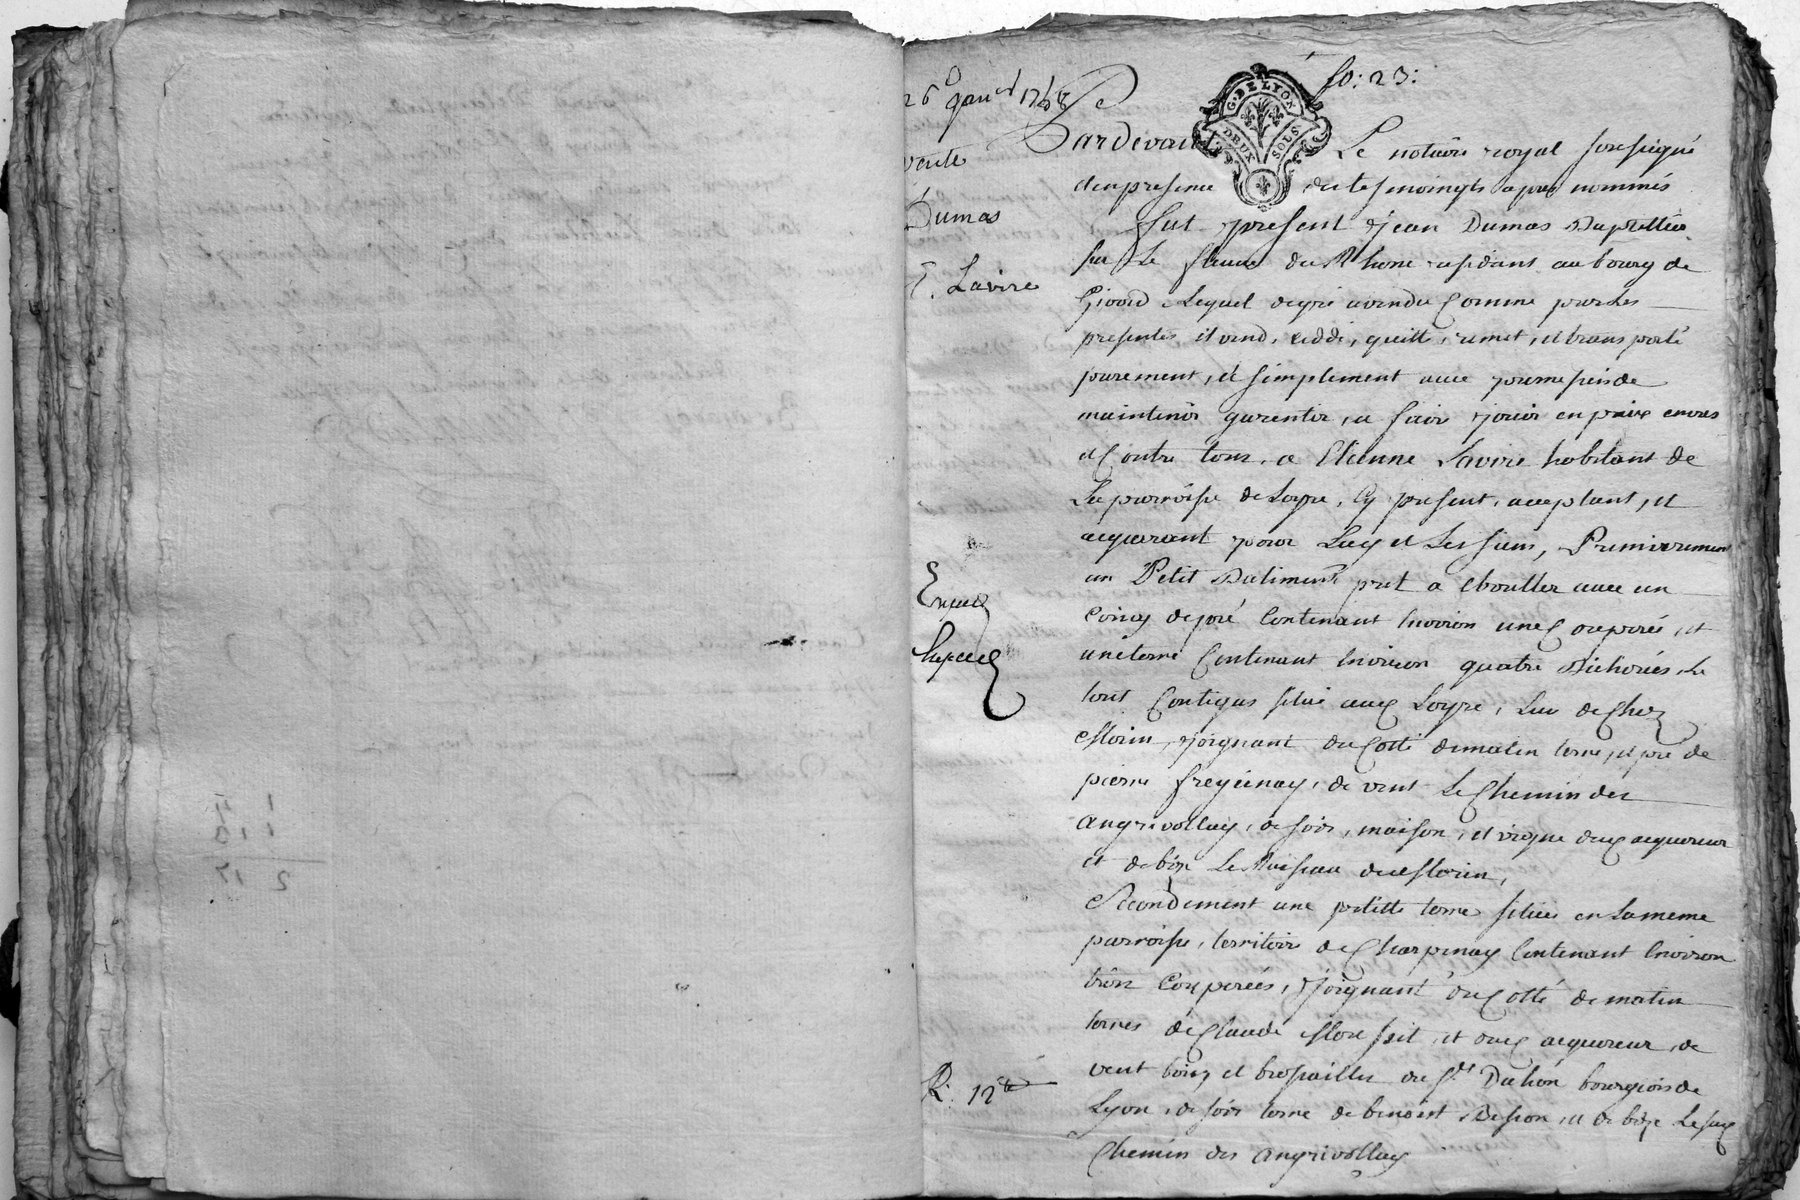 fo: 23:
26e janer 1768
vente
Dumas
E. Lavire
Exped
R. 12
G. DE LYON
DEUX SOLS
Pardevant Le notaire royal soussigné
et en presence des tesmoingts apres nommés
fut present Jean Dumas Bapttier
sur Le fleuve du Rhone residant au bourg de
Givord Lequel de gré a vendu Comme par Les
presentes il vend, cedde, quitte, remet, et transporte
purement, et simplement avec promesse de
maintenir garentir, et faire jouir en paix envers
et Contre tous, a Etienne Lavire habitant de
La parroisse de Loyre, Cy present, acceptant, et
acquerant pour Luy et Les siens, Premierement
un Petit Batiment pret a ebouller avec un
Coing de pré Contenant Environ une Couperée, et
une terre Contenant Environ quatre Bicherées, Le
tout Contigus situé aux Loyre, Lieu de Chez
Morin, Joignant du Cotté de matin terre, et pré de
pierre freycinay, de vent Le Chemin des
angrivollay, de soir, maison, et vigne dud acquereur
et de bize Le Ruisseau de Morin,
Secondement une petitte terre située en La meme
parroisse, territoire de Charpenay Contenant Environ
trois Couperées, Joignant du Cotté de matin
terres de Claude et dud acquereur, de
vent bois et brossailles du Sr. bourgeois de
Lyon, de soir terre de benoist Besson, et de bize Le sus
Chemin des angrivollay